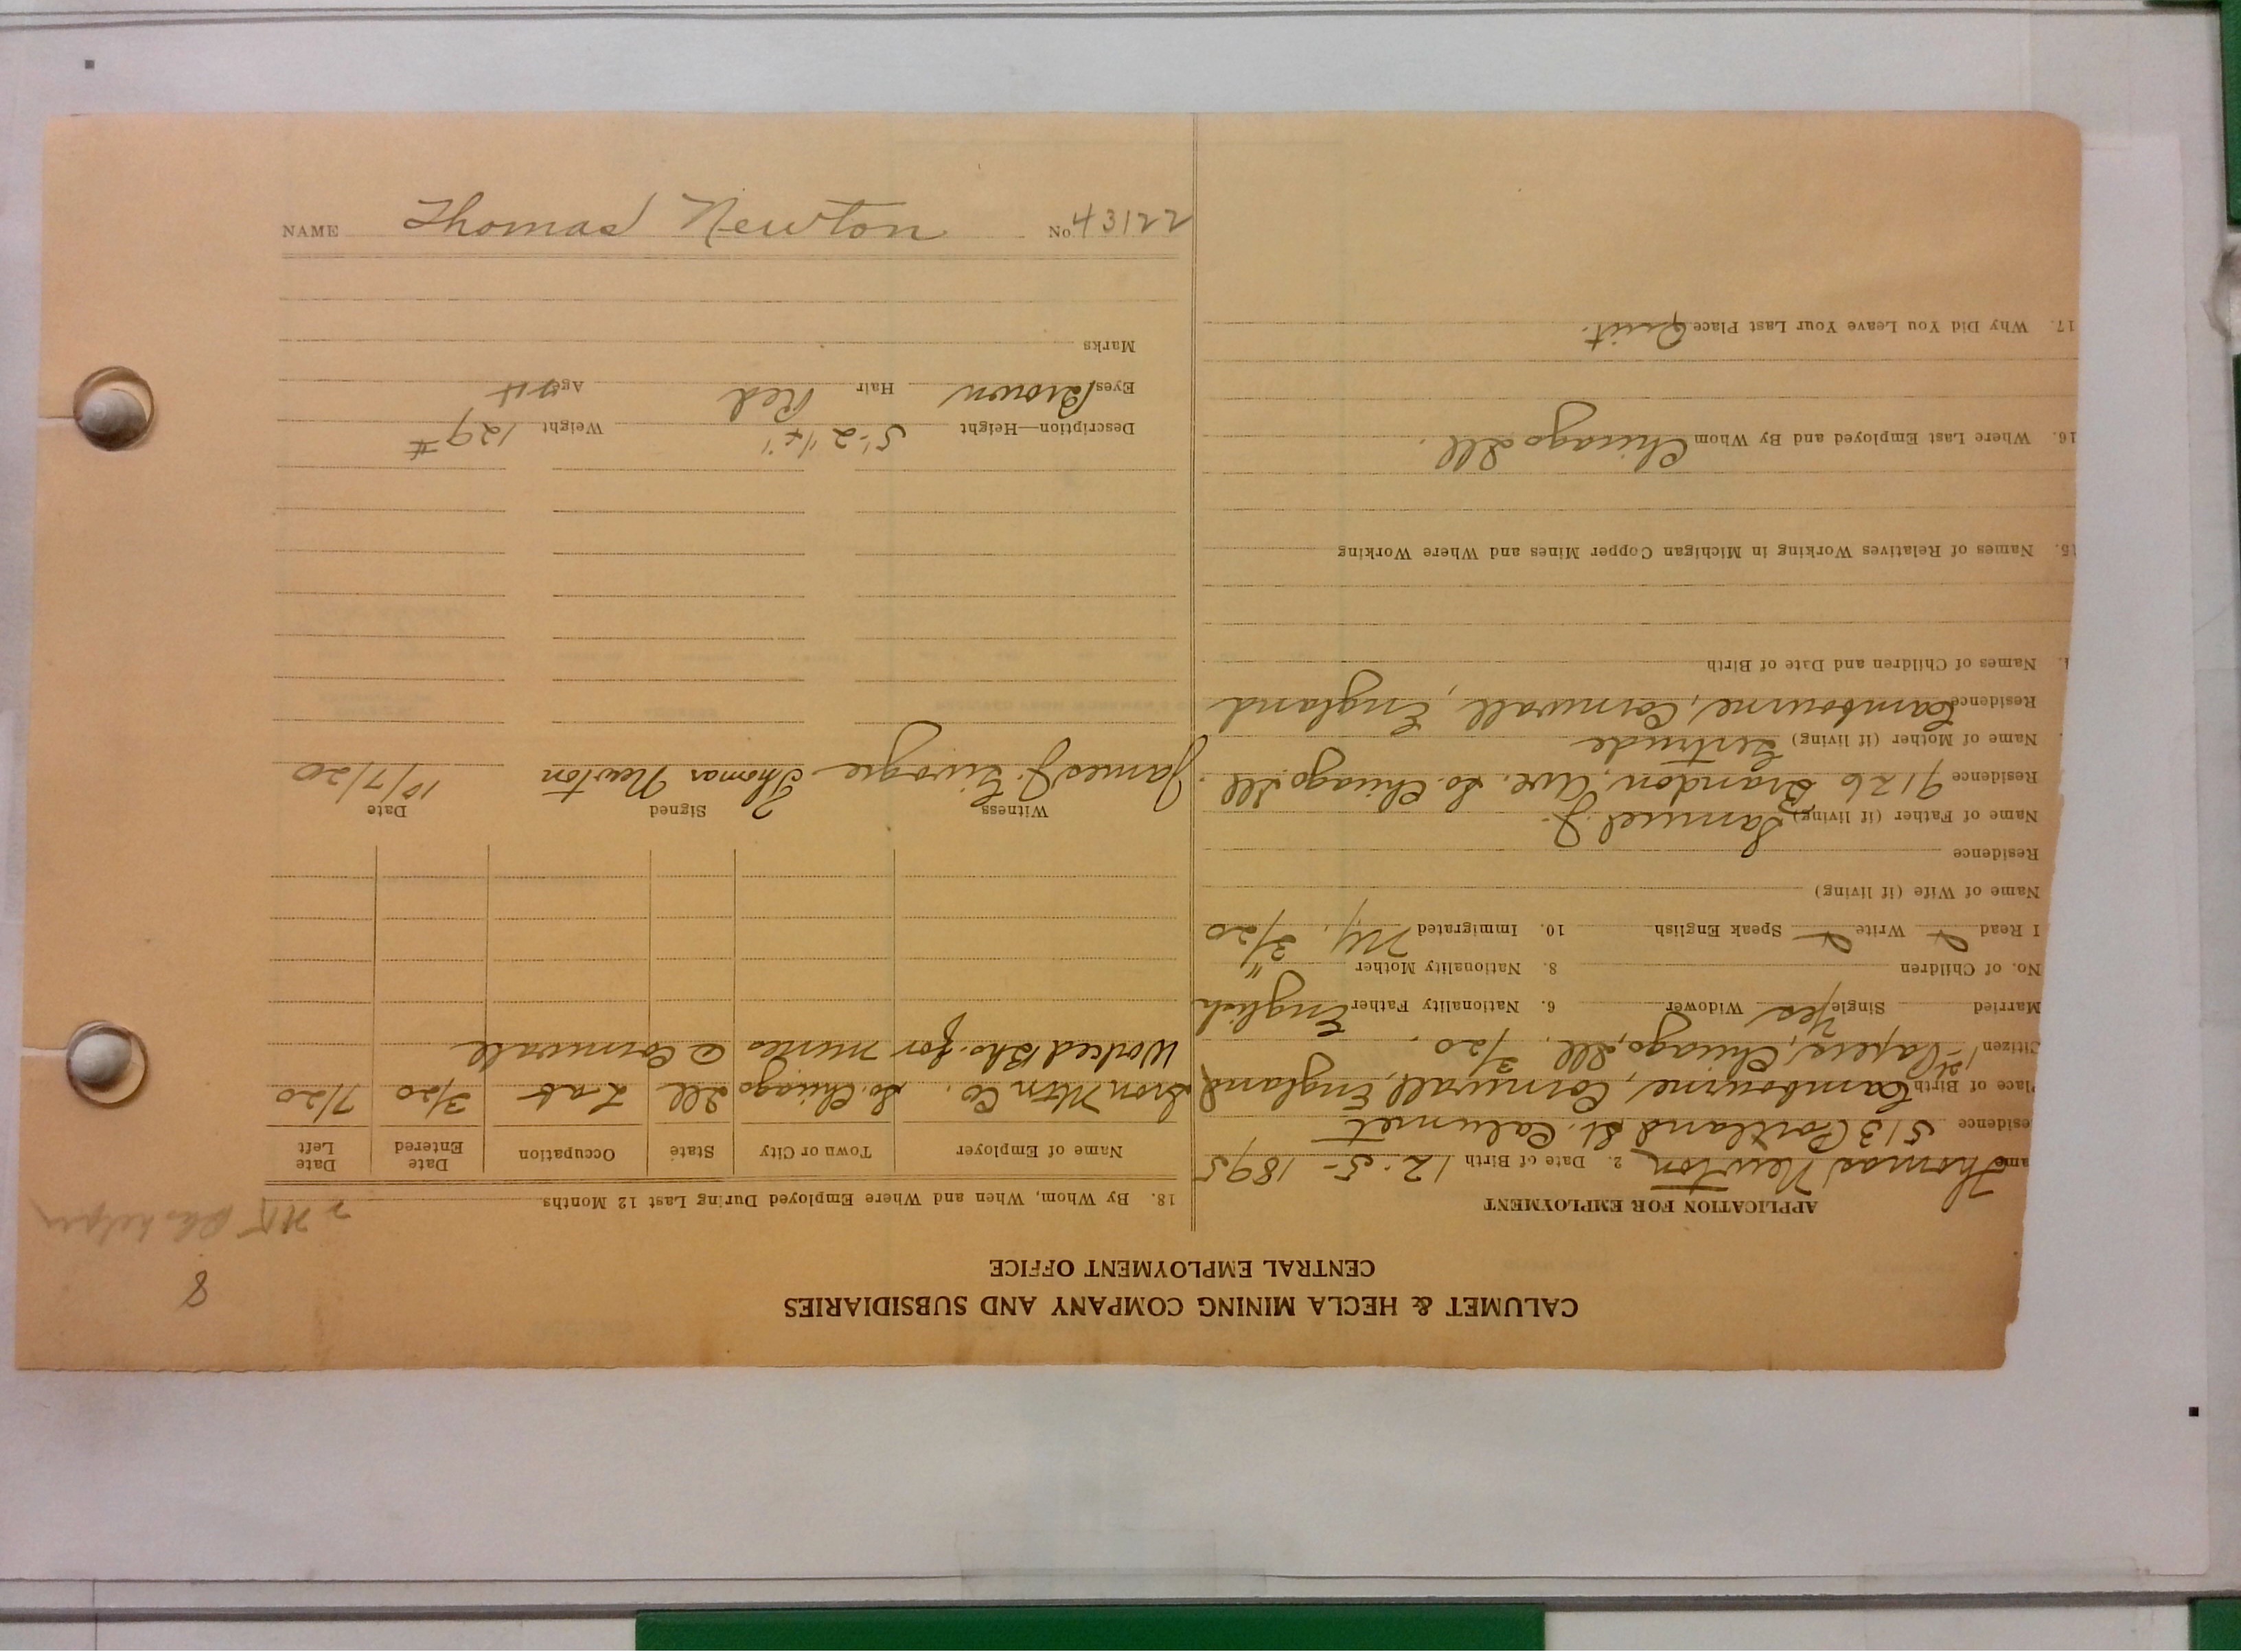 CALUMET & HECLA MINING COMPANY AND SUBSIDIARIES
CENTRAL EMPLOYMENT OFFICE
8
APPLICATION FOR EMPLOYMENT
ame Thomas Newton 2. Date of Birth 12-5-1895
esidence 513 Portland St. Calumet
Place of Birth Cambourne, Cornwall, England
Citizen 1st Papers, Chicago, Ill. 3/20.
Married Single Yes Widower 6. Nationality Father English
No. of Children 8. Nationality Mother "
I Read Write Speak English 10. Immigrated NY. 3/20
Name of Wife (if living)
Residence
Name of Father (if living) Samuel J.
Residence 9126 Brandon, Ave. So. Chicago Ill.
Name of Mother (if living) Gertrude
Residence Cambourne, Cornwall, England
Names of Children and Date of Birth
15. Names of Relatives Working in Michigan Copper Mines and Where Working
16. Where Last Employed and By Whom Chicago Ill.
17. Why Did You Leave Your Last Place Quit.
helper
18. By Whom, When and Where Employed During Last 12 Months
Name of Employer Town or City State Occupation Date Entered Date Left
Iron Mtn Co. So. Chicago Ill Lab 3/20 7/20
Worked Bks. for mines @ Cornwall
Witness Signed Date
James J. Thomas Newton 10/7/20
Description—Height 5'-2 1/4" Weight 129#
Eyes Brown Hair Red Age 24
Marks
NAME Thomas Newton No. 43122